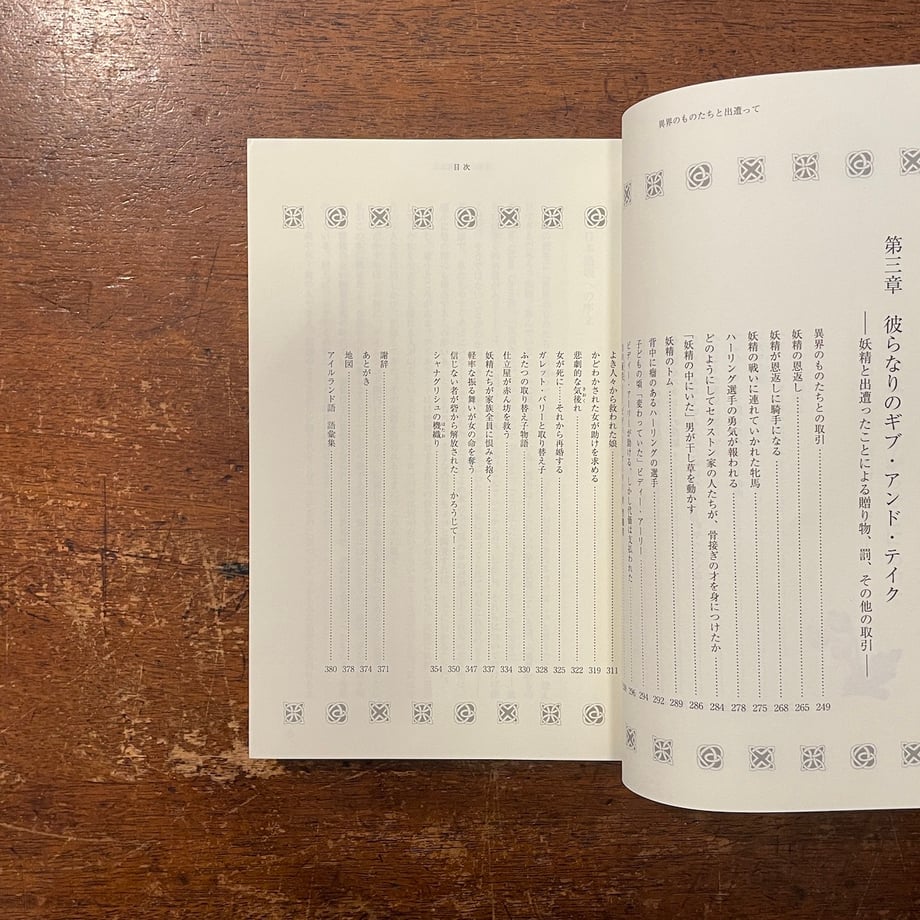 異界のものたちと出遭って
第三章　彼らなりのギブ・アンド・テイク
――妖精と出遭ったことによる贈り物、罰、その他の取引――
異界のものたちとの取引 249
妖精の恩返し 265
妖精が恩返しに騎手になる 268
妖精の戦いに連れていかれた牝馬 275
ハーリング選手の勇気が報われる 278
どのようにしてセクストン家の人たちが、骨接ぎの才を身につけたか 284
「妖精の中にいた」男が干し草を動かす 286
妖精のトム 289
背中に瘤のあるハーリングの選手 292
子どもの頃「変わっていた」ビディー・アーリー 294
ビディー・アーリーが助ける、しかし代価は支払われた 296
目次
よき人々から救われた娘 311
かどわかされた女が助けを求める 319
悲劇的な気後れ 322
女が死に……それから再婚する 325
ガレット・バリーと取り替え子 328
ふたつの取り替え子物語 330
仕立屋が赤ん坊を救う 334
妖精たちが家族全員に恨みを抱く 337
軽率な振る舞いが女の命を奪う 347
信じない者が砦から解放された――かろうじて! 350
シャナグリシュの機織り 354
謝辞 371
あとがき 374
地図 378
アイルランド語　語彙集 380